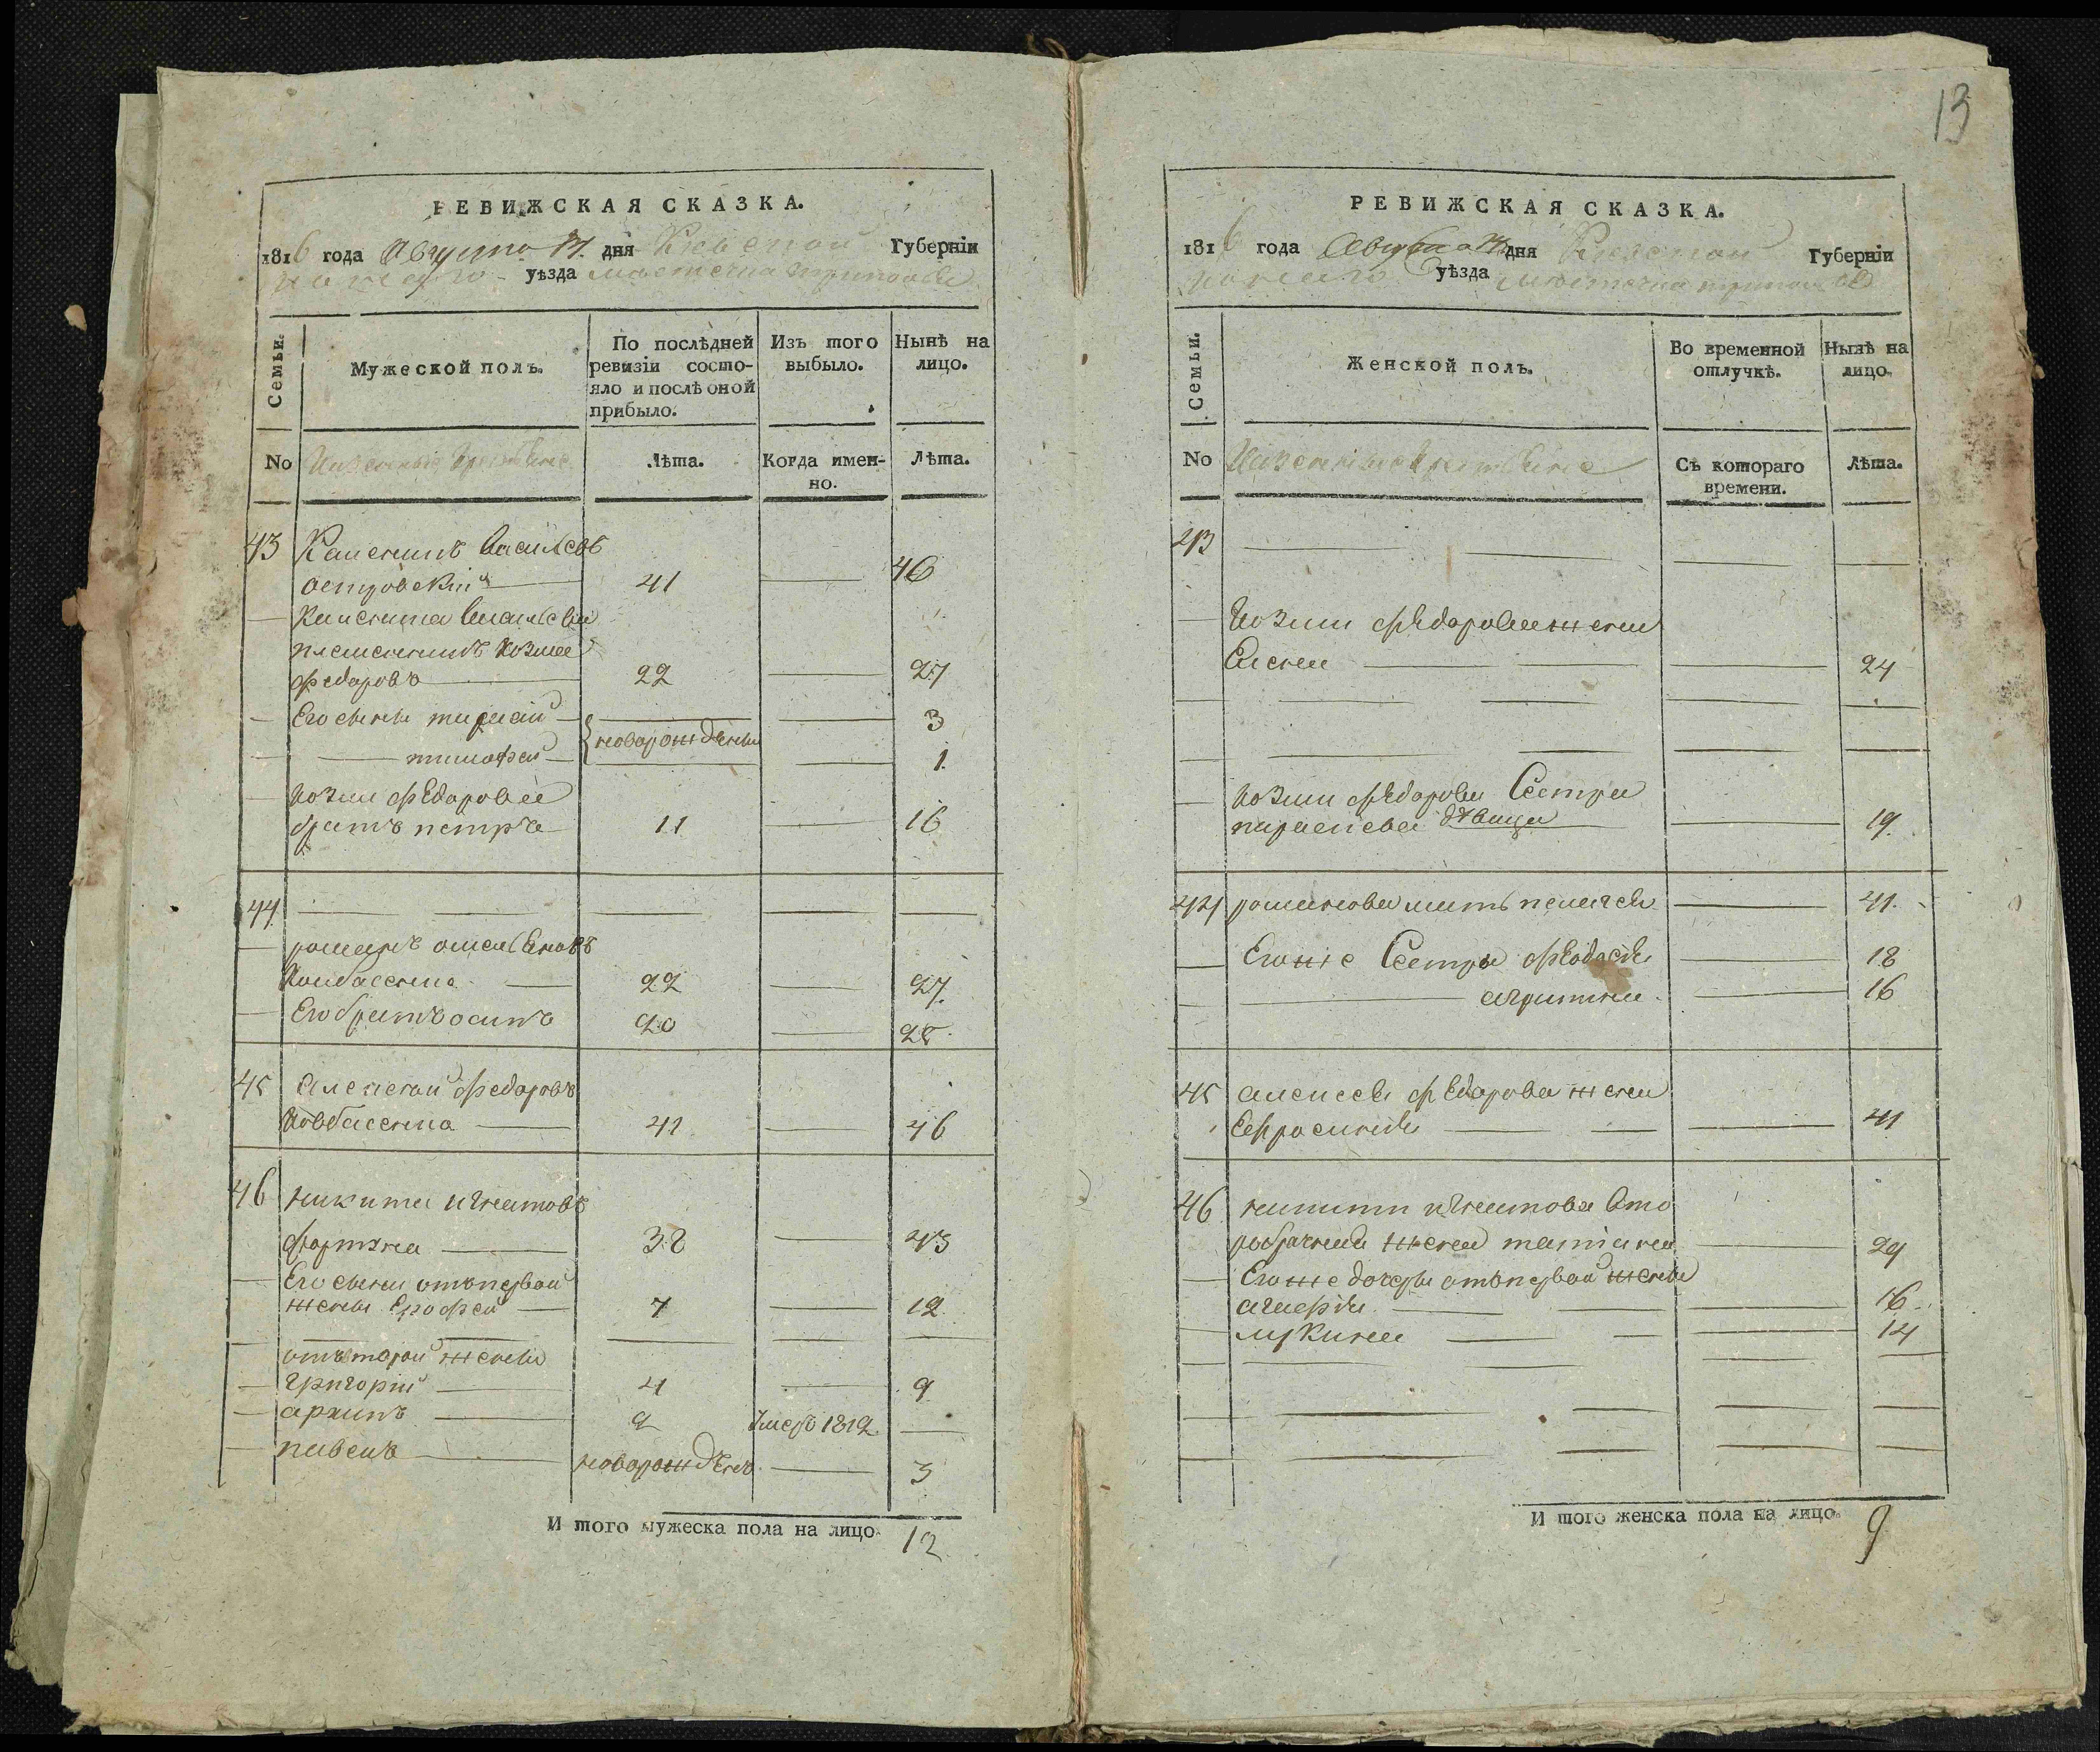 13
РЕВИЖСКАЯ СКАЗКА.
1816 года Августа 31. дня Киевской Губерніи
уѣзда местечка триполя
Семьи.
Мужеской полъ.
По послѣдней ревизіи состо-
яло и послѣ оной
прибыло.
Изъ того
выбыло.
Нынѣ на
лицо.
No
Казенные крестьяне
Лѣта.
Когда имен-
но.
Лѣта.
43 Калениκъ Василевъ
островскій 41 46
Каленика Василева
племенникъ козма
федоровъ 22 27
Его сыны 3
тимофей новорожденны 1.
козми федорова
братъ петръ 11 16
44.
романъ омеляновъ
Ковбасенко 22 27.
Его братъ осипъ 20 25.
45 Алексей федоровъ
Ковбасенко 41 46
46 никита игнатовъ
38 43
Его сыны отъ первой
жены Ерофей 7 12
отъ второй жены
григорій 4 9
архипъ 2 умеръ 1812.
павелъ новорожденъ 3
И того мужеска пола на лицо. 12
РЕВИЖСКАЯ СКАЗКА.
1816 года Августа 31 дня Киевской Губерніи
уѣзда местечка триполя
Семьи.
Женской полъ.
Во временной
отлучкѣ.
Нынѣ на
лицо.
No
Казенные крестьяне
Съ котораго
времени.
Лѣта.
43
Козми федорова жена
Елена 24
козми федорова Сестра
параскева девица 19.
44 романова мать пелагея 41.
Его же Сестры феодосія 18
агрипина. 16
45 алексея федорова жена
Ефросинія 41
46 никити игнатова вто
робрачная жена татіяна 29
Его же дочеры отъ первой жены
агафія. 16
мукина 14
И того женска пола на лицо. 9